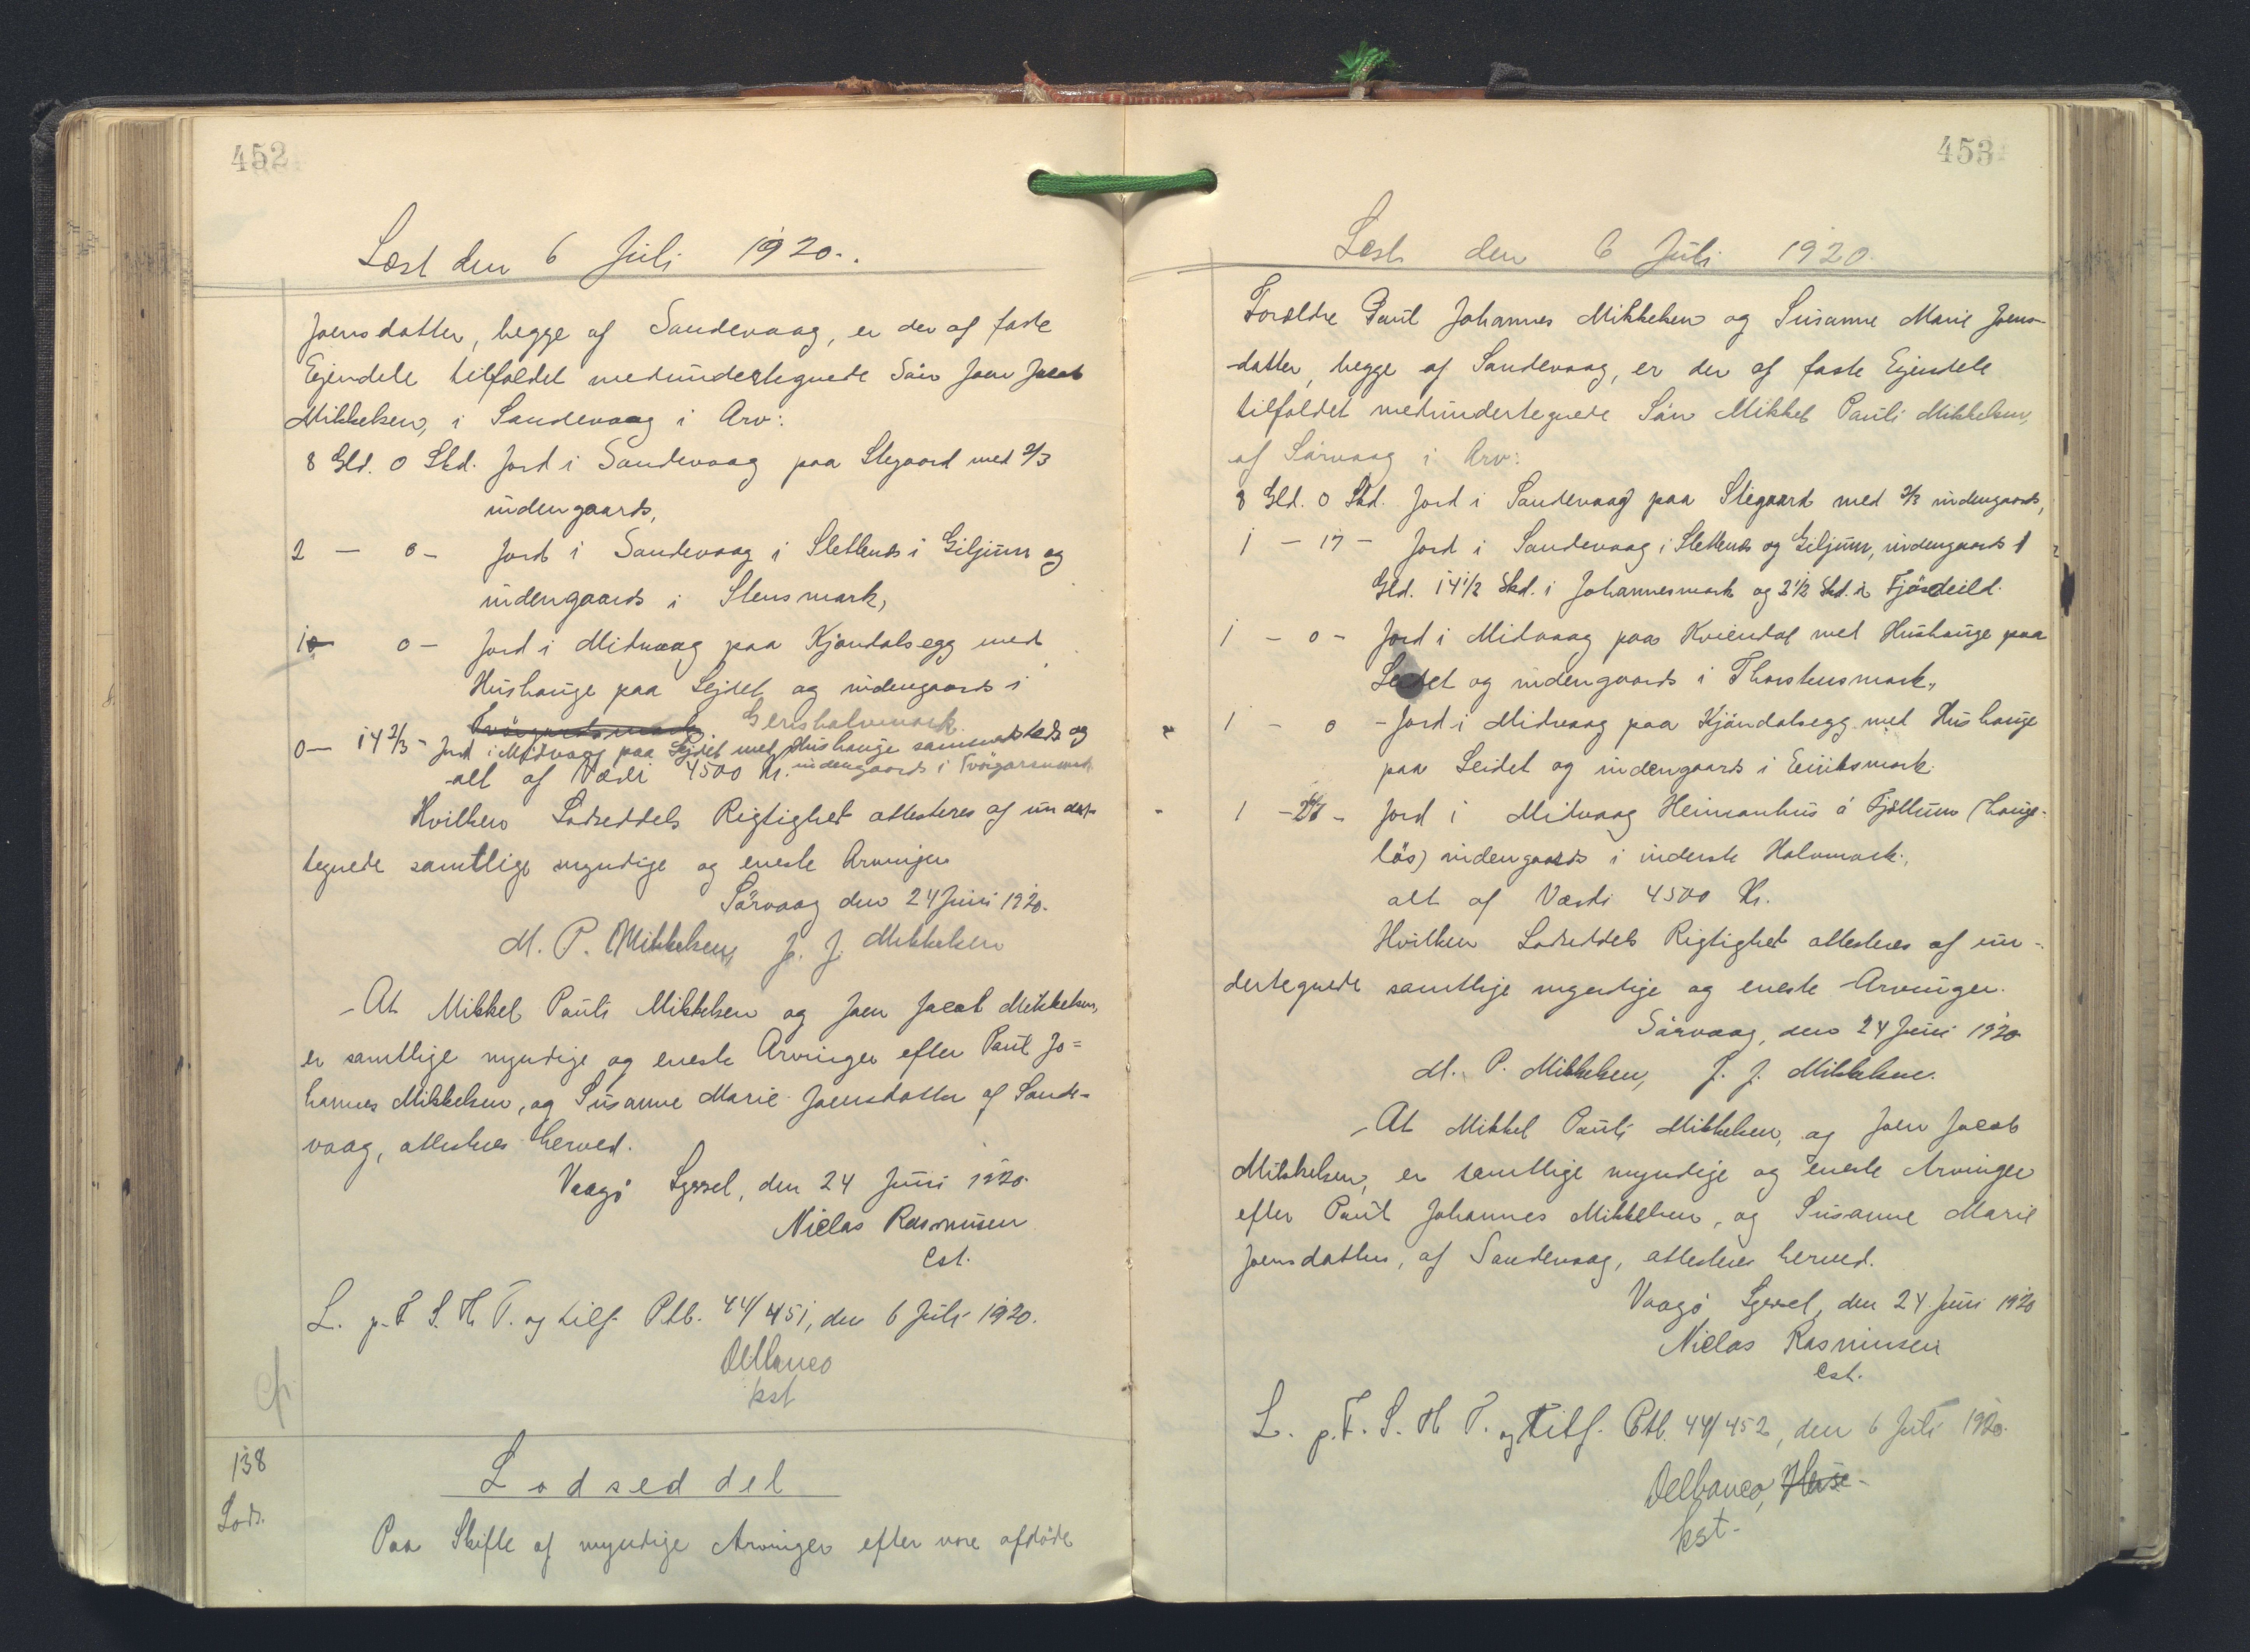 452
Læst den 6 Juli 1920.
Joensdatter, begge af Sandevaag, er der af faste
Ejendele tilfaldet medundertegnede Sön Joen Jacob
Mikkelsen, i Sandevaag i Arv:
8 Gld. 0 Skd. Jord i Sandevaag paa Stegaard med 2/3
indengaards,
2 — 0 – Jord i Sandevaag i Slettends i Giljum og
indengaards i Stensmark,
1 0 – Jord i Midvaag paa Kjandalsegg med
Hushauge paa Lejdet og indengaards i
Gerishalvmark
0 – 14 2/3 – Jord i Midvaag paa Lejdet med Hushauge sammesteds og
indengaards i Tvögarsmark
alt af Værdi 4500 Kr.
Hvilken Lodseddels Rigtighed attesteres af under-
tegnede samtlige myndige og eneste Arvinger
Sörvaag den 24 Juni 1920.
M. P. Mikkelsen, J. J. Mikkelsen
– At Mikkel Pauli Mikkelsen og Joen Jacob Mikkelsen,
er samtlige myndige og eneste Arvinger efter Paul Jo=
hannes Mikkelsen, og Susanne Marie Joensdatter af Sande=
vaag, attesteres herved.
Vaagö Syssel, den 24 Juni 1920.
Niclas Rasmusen
cst.
L. p. F. S. H. T. og tilf. Ptb. 44/451, den 6 Juli 1920.
Delbanco
kst
138
Lods.
Lodseddel
Paa Skifte af myndige Arvinger efter vore afdöde
453
Læst den 6 Juli 1920.
Forældre Paul Johannes Mikkelsen og Susanne Marie Joens-
datter, begge af Sandevaag, er der af faste Ejendele
tilfaldet medundertegnede Sön Mikkel Pauli Mikkelsen,
af Sörvaag i Arv:
8 Gld. 0 Skd. Jord i Sandevaag paa Stegaard med 2/3 indengaards,
1 – 17 – Jord i Sandevaag i Slettends og Giljum, indengaards 1
Gld. 14 1/2 Skd. i Johannesmark og 2 1/2 Skd. i Fjösdeild.
1 – 0 – Jord i Midvaag paa Kviendal med Hushauge paa
Leidet og indengaards i Thorshusmark,
1 – 0 – Jord i Midvaag paa Kjåndalsegg med Hushauge
paa Leidet og indengaards i Eiriksmark.
1 – Jord i Midvaag Heimanhus á Fjöttum (hauge-
lös) indengaards i inderste Halvmark.,
alt af Værdi 4500 Kr.
Hvilken Lodseddels Rigtighed attesteres af un-
dertegnede samtlige myndige og eneste Arvinger.
Sörvaag, den 24 Juni 1920
M. P. Mikkelsen, J. J. Mikkelsen.
– At Mikkel Pauli Mikkelsen, og Joen Jacob
Mikkelsen, er samtlige myndige og eneste Arvinger
efter Paul Johannes Mikkelsen, og Susanne Marie
Joensdatter, af Sandevaag, attesteres herved.
Vaagö Syssel, den 24 Juni 1920
Niclas Rasmusen
cst.
L. p. F. S. H. T. og Tilf. Ptb. 44/452, den 6 Juli 1920.
Delbanco,
kst.